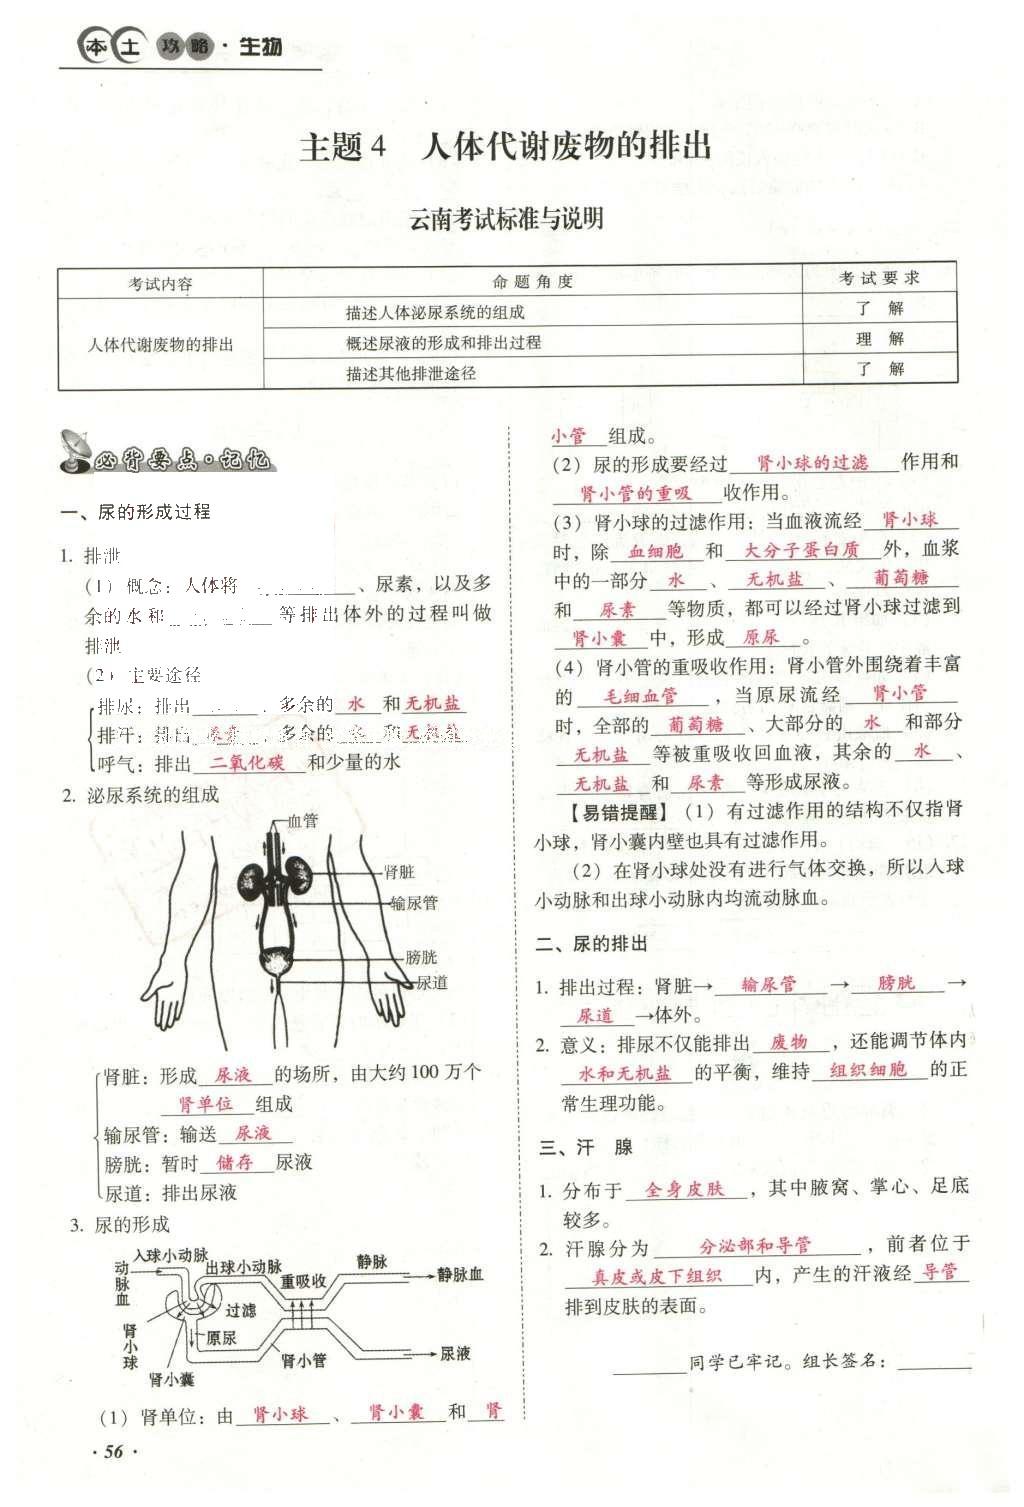 本土攻略·生物
主题4 人体代谢废物的排出
云南考试标准与说明
考试内容 命题角度 考试要求
人体代谢废物的排出
描述人体泌尿系统的组成 了解
概述尿液的形成和排出过程 理解
描述其他排泄途径 了解
必背要点·记忆
一、尿的形成过程
1. 排泄
(1) 概念：人体将、尿素，以及多
余的水和等排出体外的过程叫做
排泄
(2) 主要途径
排尿：排出、多余的 水 和 无机盐
排汗：排出 尿素、多余的 水 和 无机盐
呼气：排出 二氧化碳 和少量的水
2. 泌尿系统的组成
血管
肾脏
输尿管
膀胱
尿道
肾脏：形成 尿液 的场所，由大约100万个
肾单位 组成
输尿管：输送 尿液
膀胱：暂时 储存 尿液
尿道：排出尿液
3. 尿的形成
入球小动脉
动脉血
出球小动脉
重吸收
静脉
静脉血
过滤
肾小球
原尿
肾小管
尿液
肾小囊
(1) 肾单位：由 肾小球 、 肾小囊 和 肾
小管 组成。
(2) 尿的形成要经过 肾小球的过滤 作用和
肾小管的重吸 收作用。
(3) 肾小球的过滤作用：当血液流经 肾小球
时，除 血细胞 和 大分子蛋白质 外，血浆
中的一部分 水 、 无机盐 、 葡萄糖
和 尿素 等物质，都可以经过肾小球过滤到
肾小囊 中，形成 原尿 。
(4) 肾小管的重吸收作用：肾小管外围绕着丰富
的 毛细血管 ，当原尿流经 肾小管
时，全部的 葡萄糖 、大部分的 水 和部分
无机盐 等被重吸收回血液，其余的 水 、
无机盐 和 尿素 等形成尿液。
【易错提醒】(1) 有过滤作用的结构不仅指肾
小球，肾小囊内壁也具有过滤作用。
(2) 在肾小球处没有进行气体交换，所以入球
小动脉和出球小动脉内均流动脉血。
二、尿的排出
1. 排出过程：肾脏→ 输尿管 → 膀胱 →
尿道 →体外。
2. 意义：排尿不仅能排出 废物 ，还能调节体内
水和无机盐 的平衡，维持 组织细胞 的正
常生理功能。
三、汗 腺
1. 分布于 全身皮肤 ，其中腋窝、掌心、足底
较多。
2. 汗腺分为 分泌部和导管 ，前者位于
真皮或皮下组织 内，产生的汗液经 导管
排到皮肤的表面。
______同学已牢记。组长签名：______
·56·